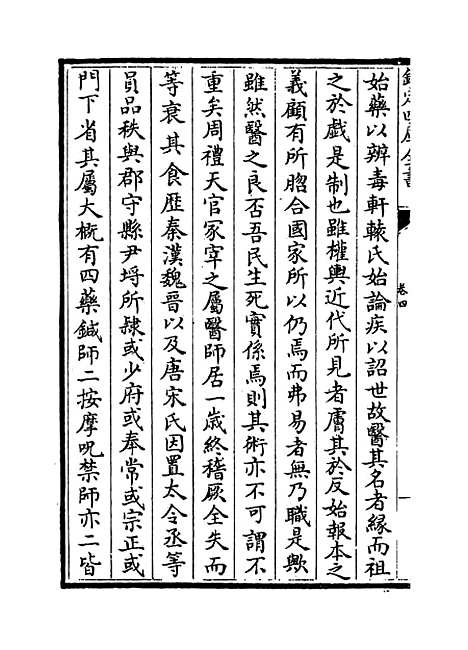 欽定四庫全書
卷四
始藥以辨毒軒轅氏始論疾以詔世故醫其名者緣而祖
之於戲是制也雖權輿近代所見者膚其於反始報本之
義顧有所脗合國家所以仍焉而弗易者無乃職是歟
雖然醫之良否吾民生死實係焉則其術亦不可謂不
重矣周禮天官冢宰之屬醫師居一歲終稽厥全失而
等衰其食歴秦漢魏晉以及唐宋氏因置太令丞等
員品秩與郡守縣尹埒所𨽻或少府或奉常或宗正或
門下省其屬大概有四藥鍼師二按摩呪禁師亦二皆